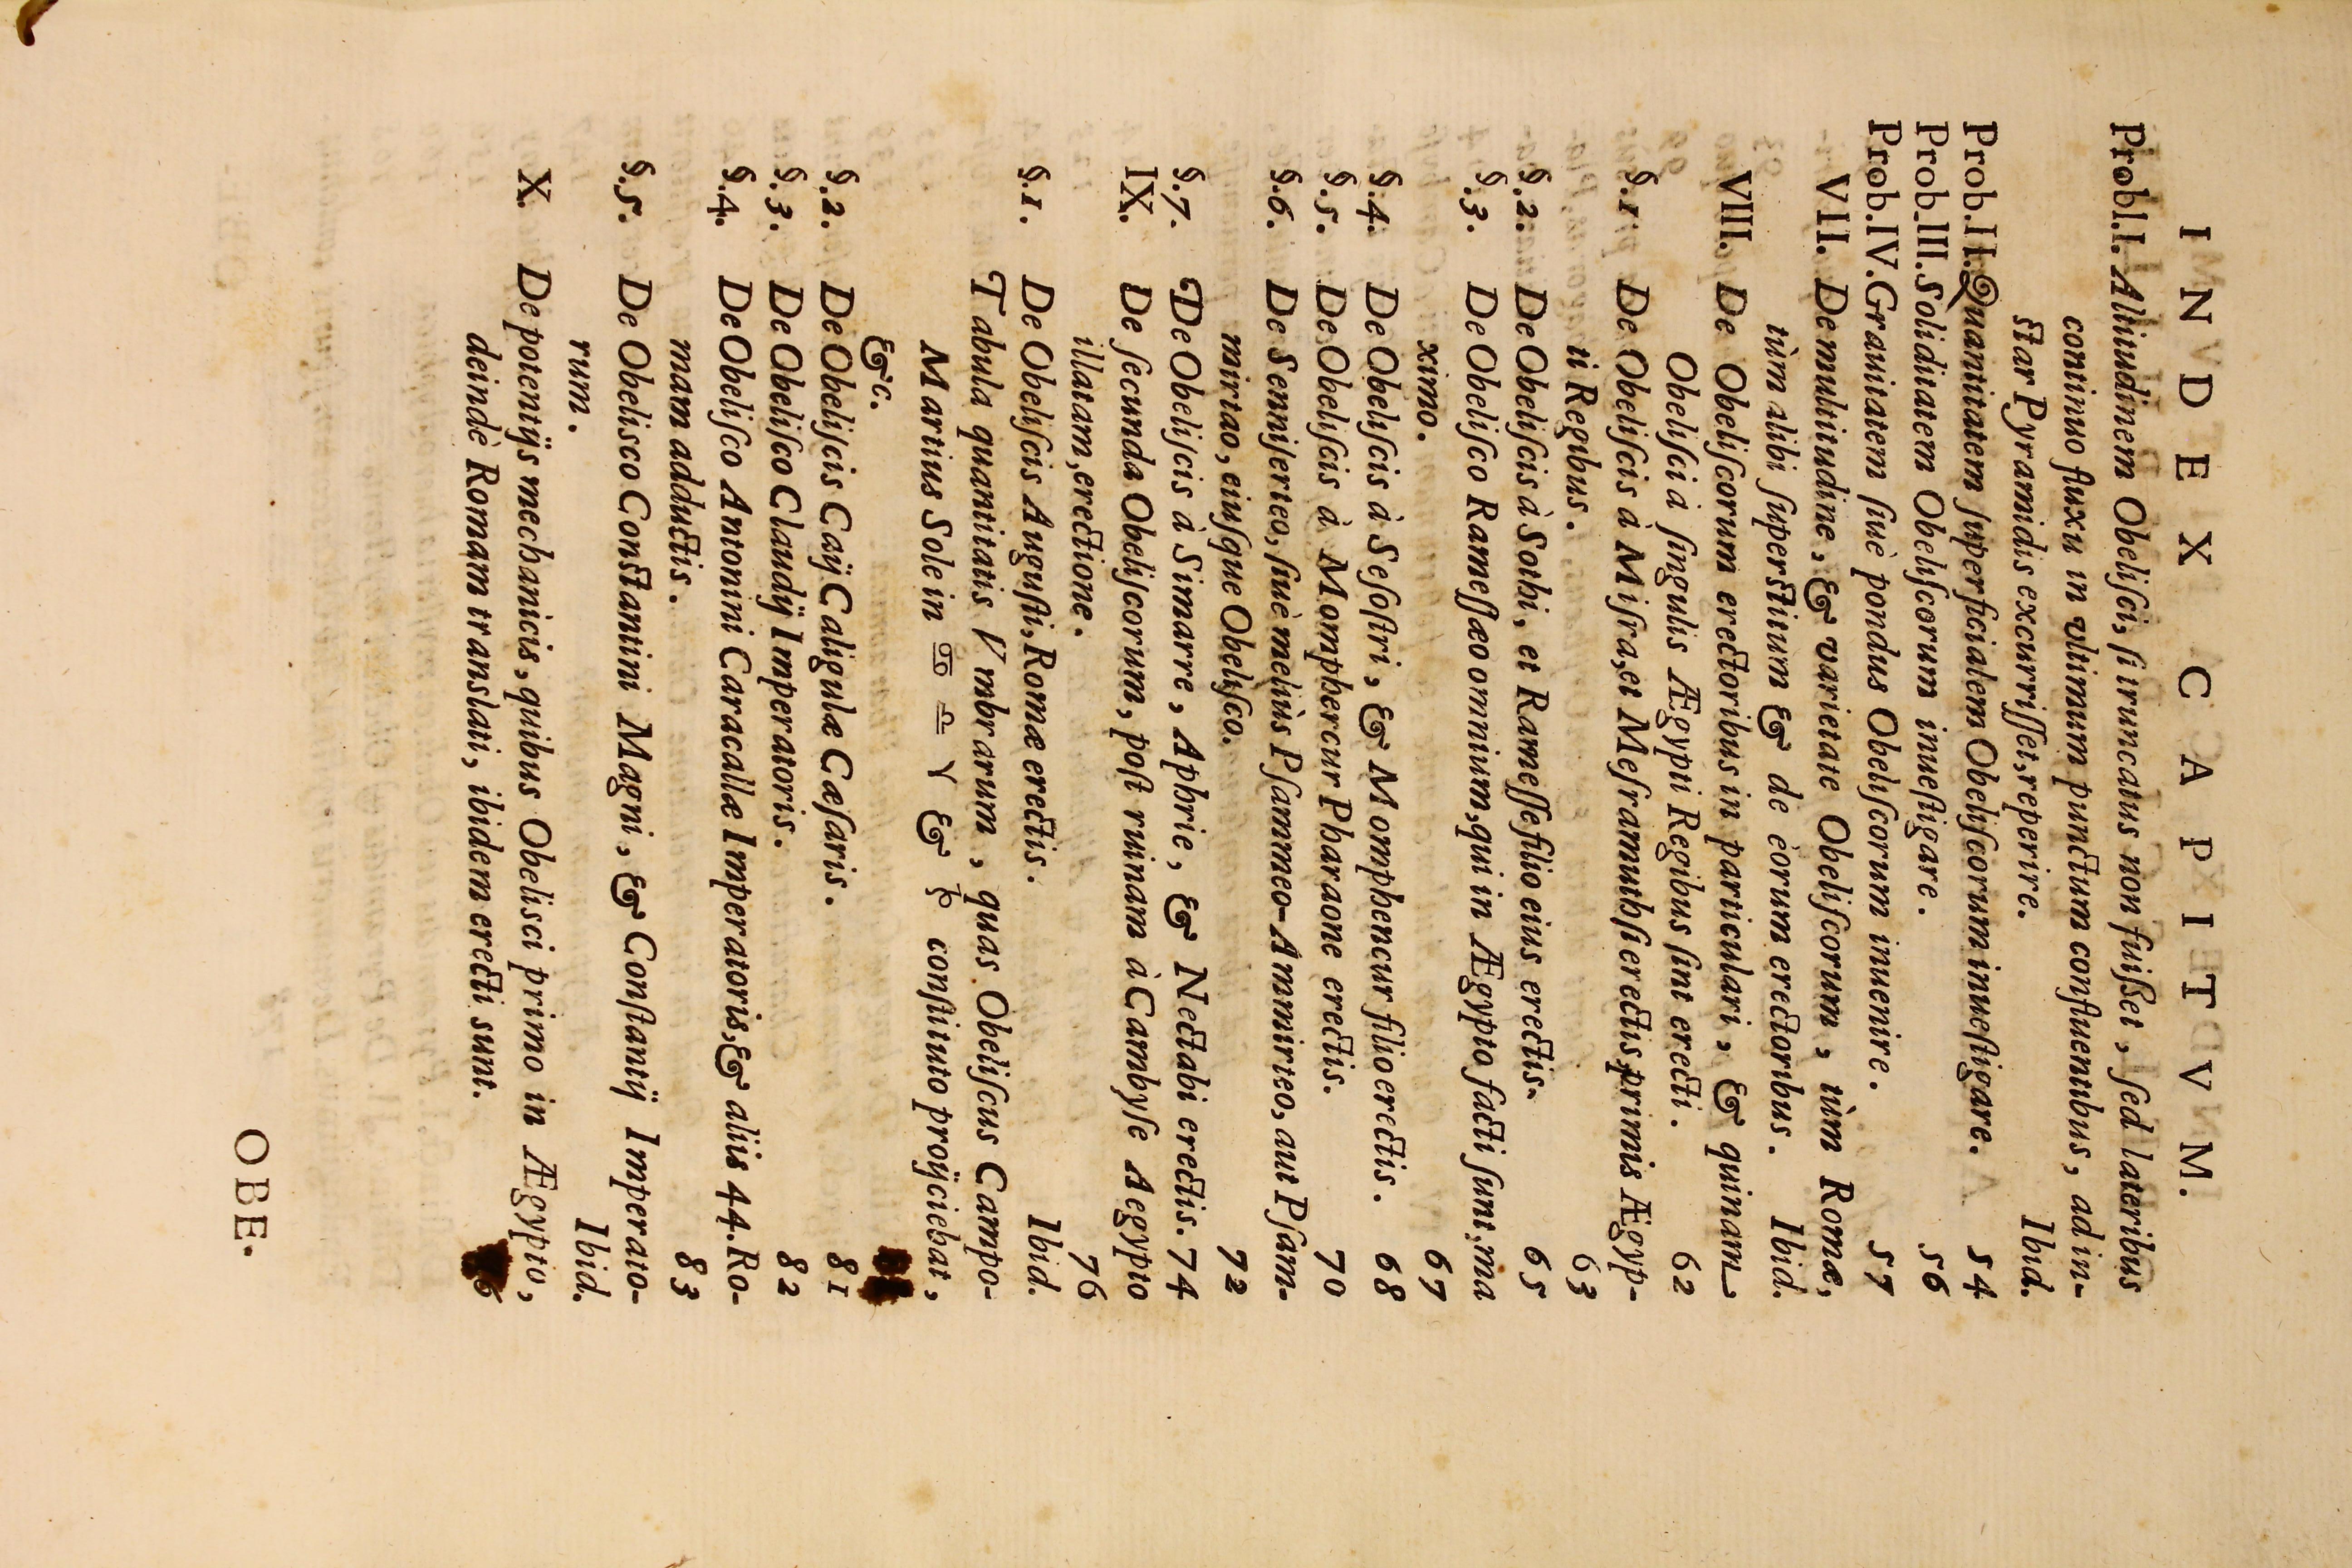 INDEX CAPITVM.
Probl.I. Altitudinem Obeliſci, ſi truncatus non fuiſſet, ſed lateribus
continuo fluxu in vltimum punctum confluentibus, ad in-
ſtar Pyramidis excurriſſet, reperire. Ibid.
Prob.II. Quantitatem ſuperficialem Obeliſcorum inueſtigare. 54
Prob.III. Soliditatem Obeliſcorum inueſtigare. 56
Prob.IV. Grauitatem ſiuè pondus Obeliſcorum inuenire. 57
VII. De multitudine, & varietate Obeliſcorum, tùm Romæ,
tùm alibi ſuperſtitum & de eorum erectoribus. Ibid.
VIII. De Obeliſcorum erectoribus in particulari, & quinam
Obeliſci à ſingulis Ægypti Regibus ſint erecti. 62
§.1 De Obeliſcis à Miſra, et Meſramuthſi erectis, primis Ægyp-
ti Regibus. 63
§.2. De Obeliſcis à Sothi, et Rameſſe filio eius erectis. 65
§.3. De Obeliſco Rameſſæo omnium, qui in Ægypto facti ſunt, ma
ximo. 67
§.4. De Obeliſcis à Seſoſtri, & Momphencur filio erectis. 68
§.5. De Obeliſcis à Momphercur Pharaone erectis. 70
§.6. De Senniſerteo, ſiuè meliùs Pſammeo-Ammirteo, aut Pſam-
mirtao, eiuſque Obeliſco. 72
§.7. De Obeliſcis à Simarre, Aphrie, & Nectabi erectis. 74
IX. De ſecunda Obeliſcorum, poſt ruinam à Cambyſe Aegypto
illatam, erectione. 76
§.1. De Obeliſcis Auguſti, Romæ erectis. Ibid.
Tabula quantitatis Vmbrarum, quas Obeliſcus Campo-
Martius Sole in ♋ ♎ ♈ & ♑ conſtituto proijciebat,
&c.
§.2. De Obeliſcis Caij Caligulæ Cæſaris. 81
§.3. De Obeliſco Claudij Imperatoris. 82
§.4. De Obeliſco Antonini Caracallæ Imperatoris, & aliis 44. Ro-
mam adductis. 83
§.5. De Obelisco Conſtantini Magni, & Conſtantij Imperato-
rum. Ibid.
X. De potentijs mechanicis, quibus Obelisci primo in Ægypto,
deindè Romam translati, ibidem erecti sunt.
OBE.